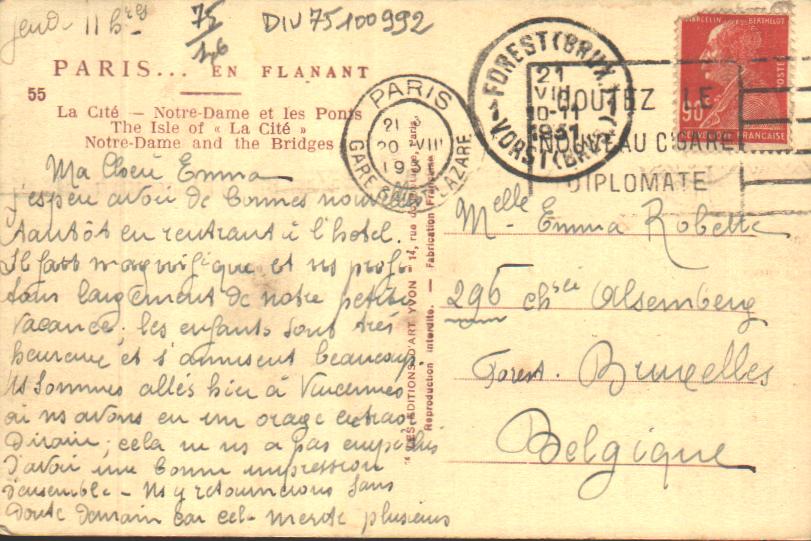 jeudi 11 hres
75
DIV75100992
PARIS... EN FLANANT
55
La Cité – Notre-Dame et les Ponts
The Isle of « La Cité »
Notre-Dame and the Bridges
Ma chère Emma
j'espère avoir de bonnes nouvelles
tantôt en rentrant à l'hotel.
Il fait magnifique et ns profi
tons largement de notre petite
vacance; les enfants sont très
heureux et s'amusent beaucoup.
Ns sommes allés hier à Vincennes
où ns avons eu un orage extraor
dinaire; cela ne ns a pas empêchés
d'avoir une bonne impression
d'ensemble – Ns y retournerons sans
doute demain car cela mérite plusieurs
LES ÉDITIONS D'ART YVON – 14, rue Paris
Reproduction interdite. – Fabrication Française
PARIS
21
20 VIII
19
GARE LAZARE
FOREST (BRUX.)
21
VIII
10-11
1931
VORST (BRUS.)
GOUTEZ LE
NOUVEAU CIGARE
DIPLOMATE
MARCELIN BERTHELOT
POSTES
90
REPUBLIQUE FRANÇAISE
Melle Emma Robette
296 chsée Alsemberg
Forest. Bruxelles
Belgique